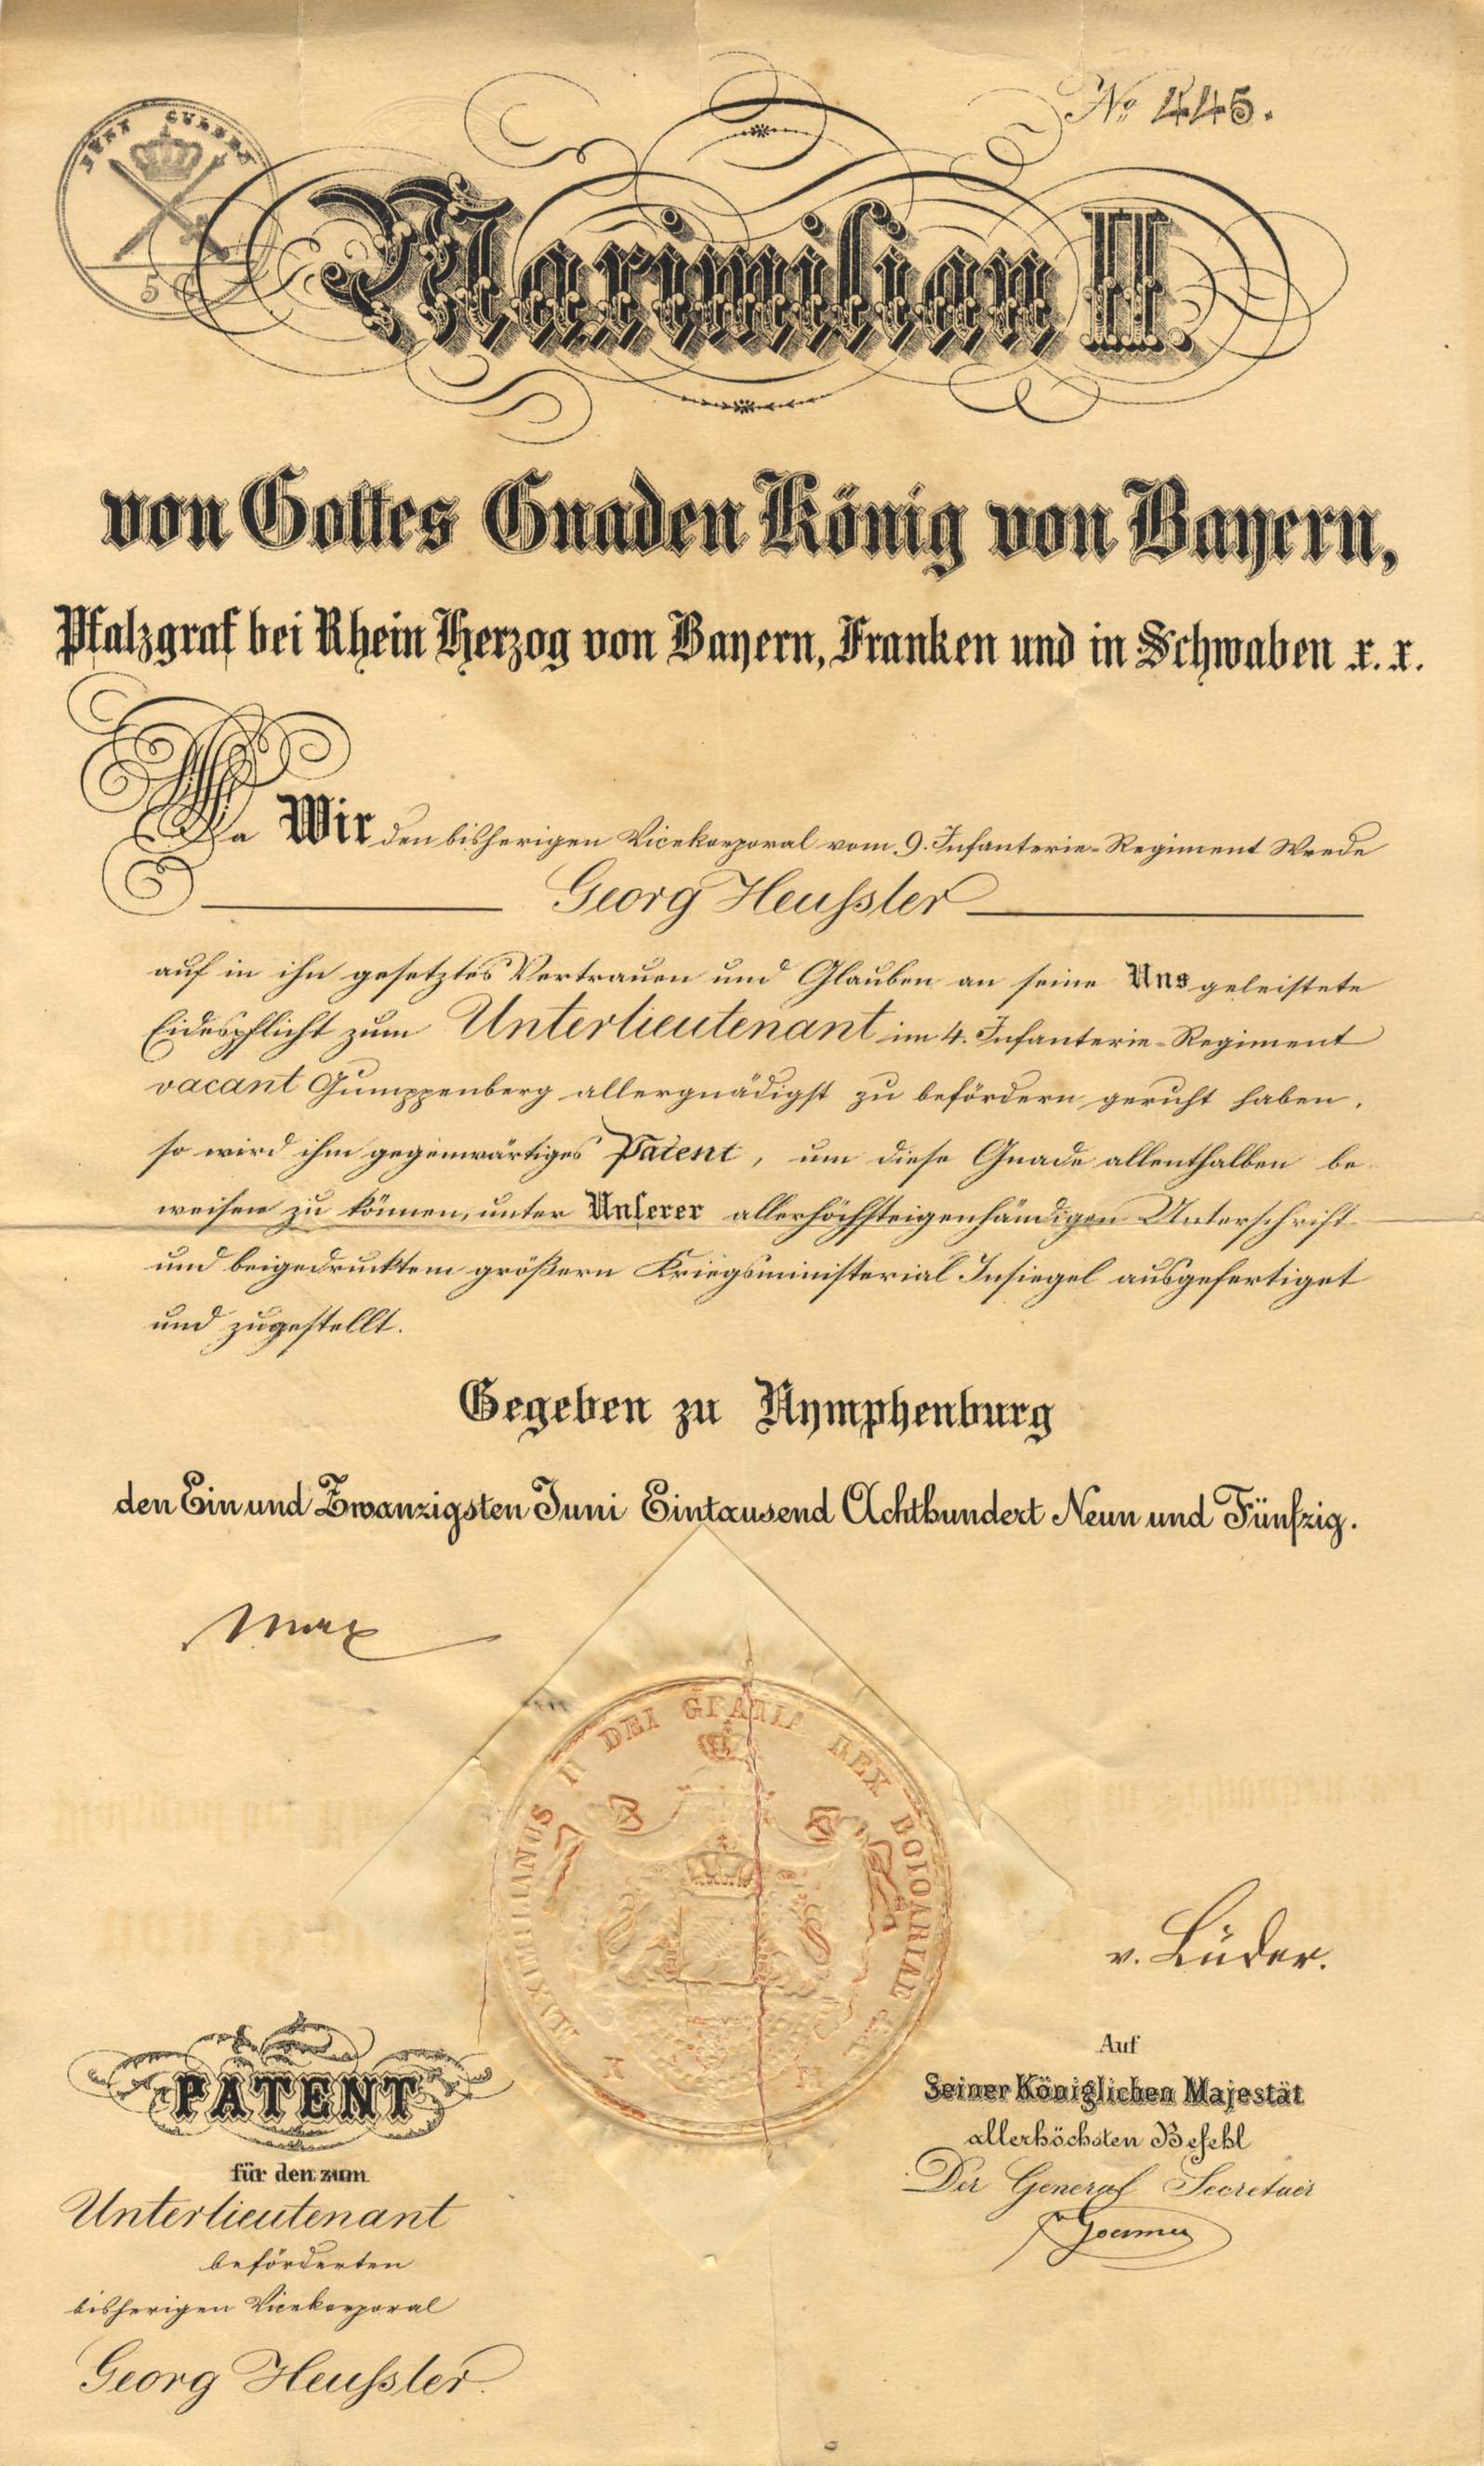 No 445.
5
Maximilian II.
von Gottes Gnaden König von Bayern,
Pfalzgraf bei Rhein Herzog von Bayern, Franken und in Schwaben x. x.
Da Wir den bisherigen Vicekorporal vom 9. Infanterie-Regiment Wrede
Georg Heußler
auf in ihn gesetztes Vertrauen und Glauben an seine Uns geleistete
Eidespflicht zum Unterlieutenant im 4. Infanterie-Regiment
vacant Gumppenberg allergnädigst zu befördern geruht haben,
so wird ihm gegenwärtiges Patent, um diese Gnade allenthalben be
weisen zu können, unter Unserer allerhöchsteigenhändigen Unterschrift
und beigedrucktem größern Kriegsministerial Insiegel ausgefertiget
und zugestellt.
Gegeben zu Nymphenburg
den Ein und Zwanzigsten Juni Eintausend Achthundert Neun und Fünfzig.
Max
MAXIMILIANUS II DEI GRATIA REX BOIOARIAE
K M
v. Lüder.
PATENT
für den zum
Unterlieutenant
beförderten
bisherigen Vicekorporal
Georg Heußler.
Auf
Seiner Königlichen Majestät
allerhöchsten Befehl
Der General Secretair